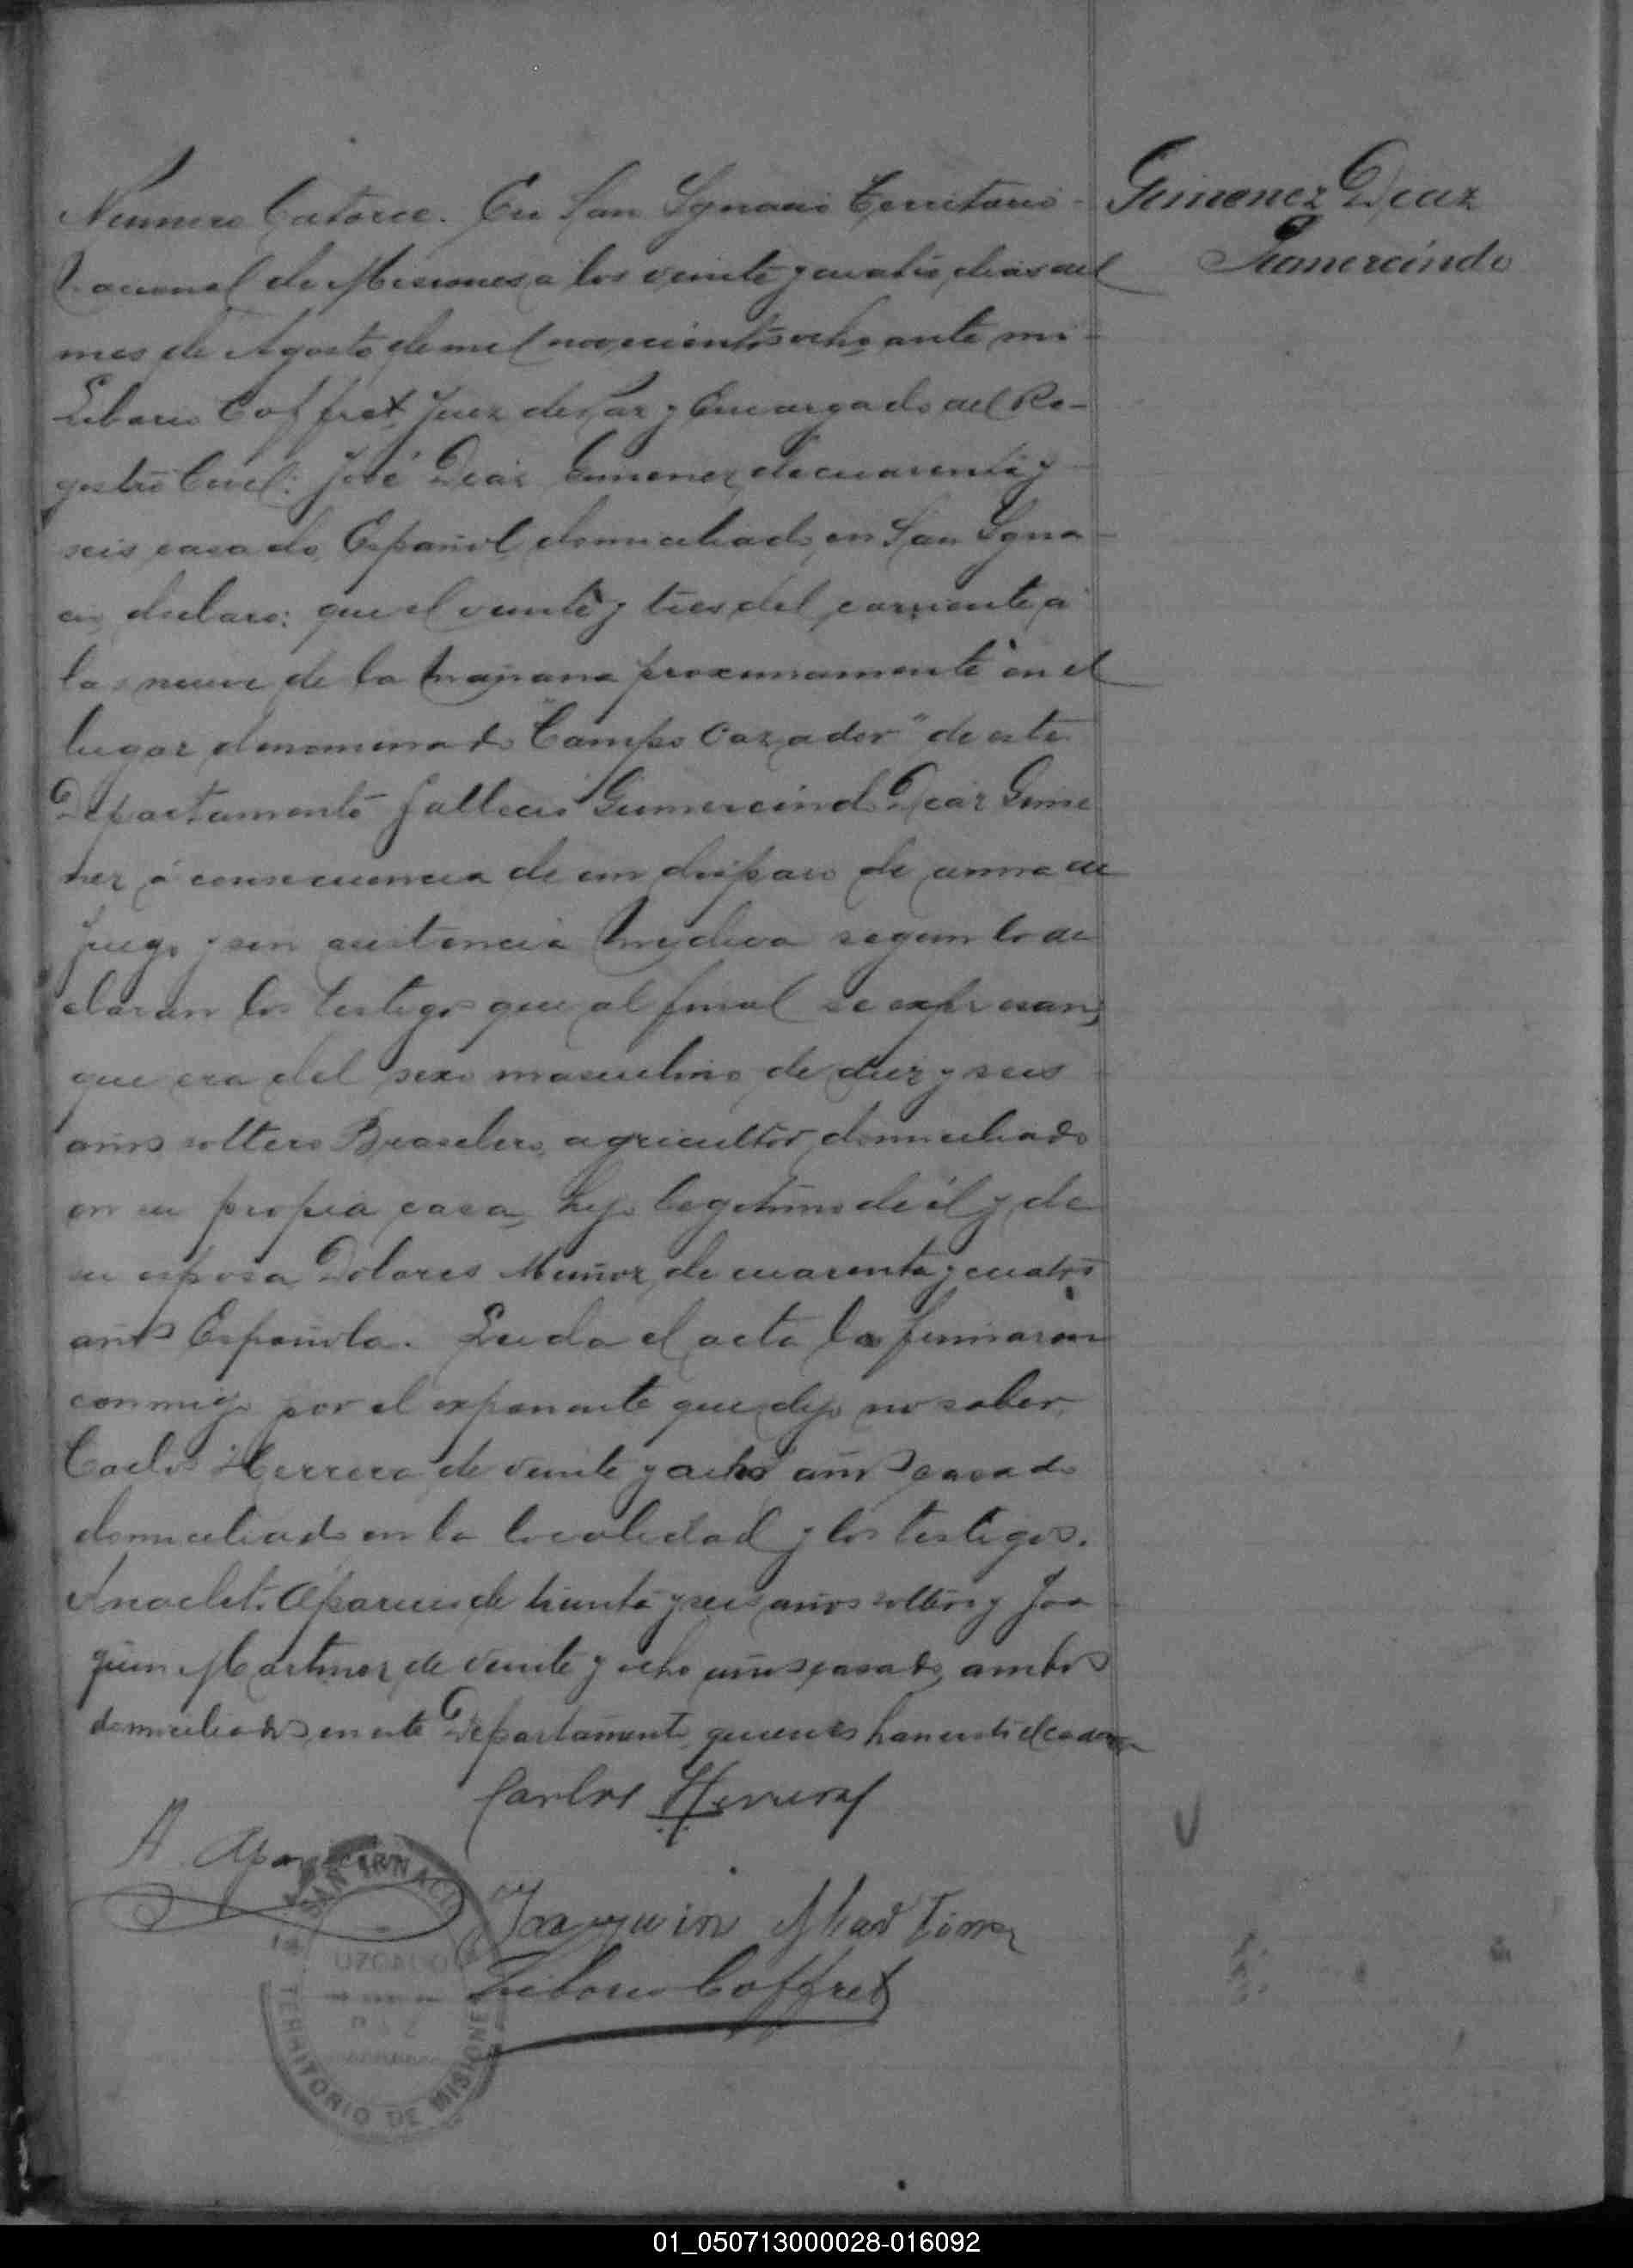 Numero Catorce. En San Ygnacio Territorio
Nacional de Misiones a los veinte y cuatro dias del
mes de Agosto de mil novecientos ocho ante mi
Liborio Coffret Juez de Paz y Encargado del Re-
gistro Civil: José Diaz Gimenez de cuarenta y
seis casado, Español, domiciliado en San Ygna
cio, declaro: que el veinte y tres del corriente, a
las nueve de la mañana proximamente en el
lugar denominado "Campo Cazador" de este
Departamento fallecio Gumercindo Diaz Gime
nez á consecuencia de un disparo de arma de
fuego y sin asistencia medica segun lo de
claran los testigos que al final se expresan,
que era del sexo masculino de diez y seis
años soltero Brasilero, agricultor, domiciliado
en su propia casa, hijo legitimo de él y de
su esposa Dolores Muñoz, de cuarenta y cuatro
años Española. Leida el acta la firmaron
conmigo por el exponente que dijo no saber
Carlos Herrera de veinte y ocho años casado
domiciliado en la localidad y los testigos.
Anacleto Aparicio de treinta y seis años soltero y Joa
quin Martinez de veinte y ocho años casado, ambos
domiciliados en este Departamento, quienes han visto el cadaver
Carlos Herrera
A. Aparicio
Joaquin Martinez
Liborio Coffret
SAN IGNACIO
JUZGADO
DE PAZ
TERRITORIO DE MISIONES
Gimenez Diaz
Gumercindo
01_050713000028-016092